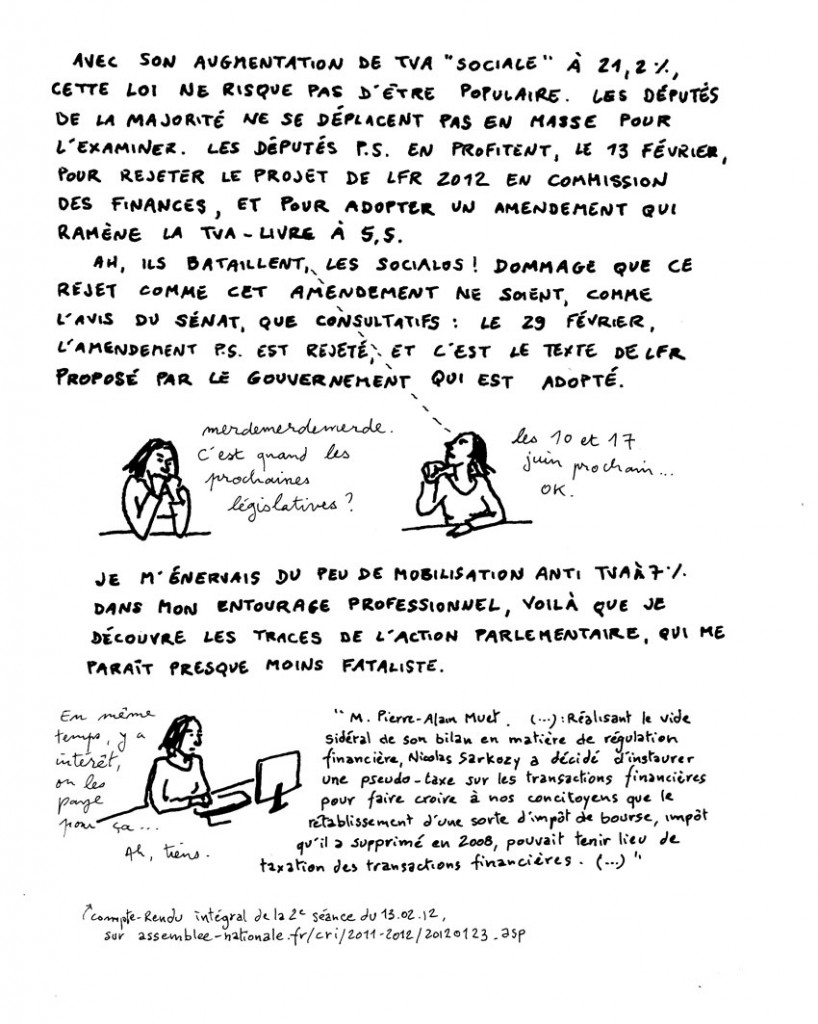 AVEC SON AUGMENTATION DE TVA "SOCIALE" À 21,2%,
CETTE LOI NE RISQUE PAS D'ÊTRE POPULAIRE. LES DÉPUTÉS
DE LA MAJORITÉ NE SE DÉPLACENT PAS EN MASSE POUR
L'EXAMINER. LES DÉPUTÉS P.S. EN PROFITENT, LE 13 FÉVRIER,
POUR REJETER LE PROJET DE LFR 2012 EN COMMISSION
DES FINANCES, ET POUR ADOPTER UN AMENDEMENT QUI
RAMÈNE LA TVA-LIVRE À 5,5.
AH, ILS BATAILLENT, LES SOCIALOS ! DOMMAGE QUE CE
REJET COMME CET AMENDEMENT NE SOIENT, COMME
L'AVIS DU SÉNAT, QUE CONSULTATIFS : LE 29 FÉVRIER,
L'AMENDEMENT P.S. EST REJETÉ, ET C'EST LE TEXTE DE LFR
PROPOSÉ PAR LE GOUVERNEMENT QUI EST ADOPTÉ.
merdemerdemerde.
C'est quand les
prochaines
législatives ?
les 10 et 17
juin prochain...
OK.
JE M'ÉNERVAIS DU PEU DE MOBILISATION ANTI TVA À 7%.
DANS MON ENTOURAGE PROFESSIONNEL, VOILÀ QUE JE
DÉCOUVRE LES TRACES DE L'ACTION PARLEMENTAIRE, QUI ME
PARAÎT PRESQUE MOINS FATALISTE.
En même
temps, y a
intérêt,
on les
paye
pour ça...
Ah, tiens.
" M. Pierre-Alain Muet. (...) : Réalisant le vide
sidéral de son bilan en matière de régulation
financière, Nicolas Sarkozy a décidé d'instaurer
une pseudo-taxe sur les transactions financières
pour faire croire à nos concitoyens que le
rétablissement d'une sorte d'impôt de bourse, impôt
qu'il a supprimé en 2008, pouvait tenir lieu de
taxation des transactions financières. (...) "
compte-Rendu intégral de la 2e séance du 13.02.12,
sur assemblee-nationale.fr/cri/2011-2012/20120123.asp